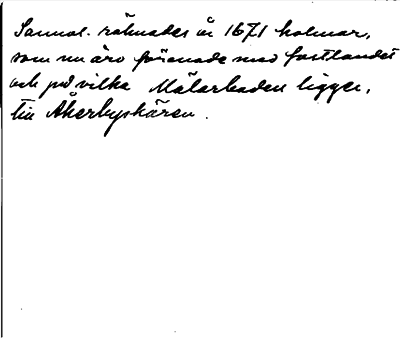 Sannol. räknades år 1671 holmar,
som nu äro förenade med fastlandet
och på vilka Mälarbaden ligger,
till Åkerbyskären.